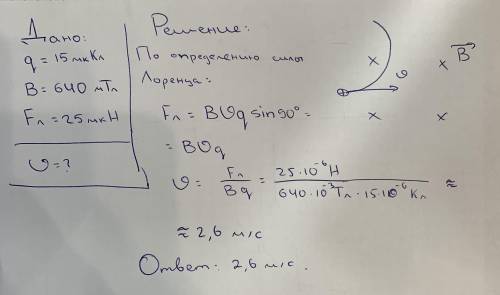 Дано:
q = 15 мкКл
B = 640 мТл
Fл = 25 мкН
υ = ?
Решение:
По определению силы
Лоренца:
Fл = Bυq sin 90° =
= Bυq
υ = Fл / Bq = 25·10⁻⁶ Н / 640·10⁻³ Тл · 15·10⁻⁶ Кл ≈
≈ 2,6 м/с
Ответ: 2,6 м/с.
× × B⃗
⊕ υ
× ×